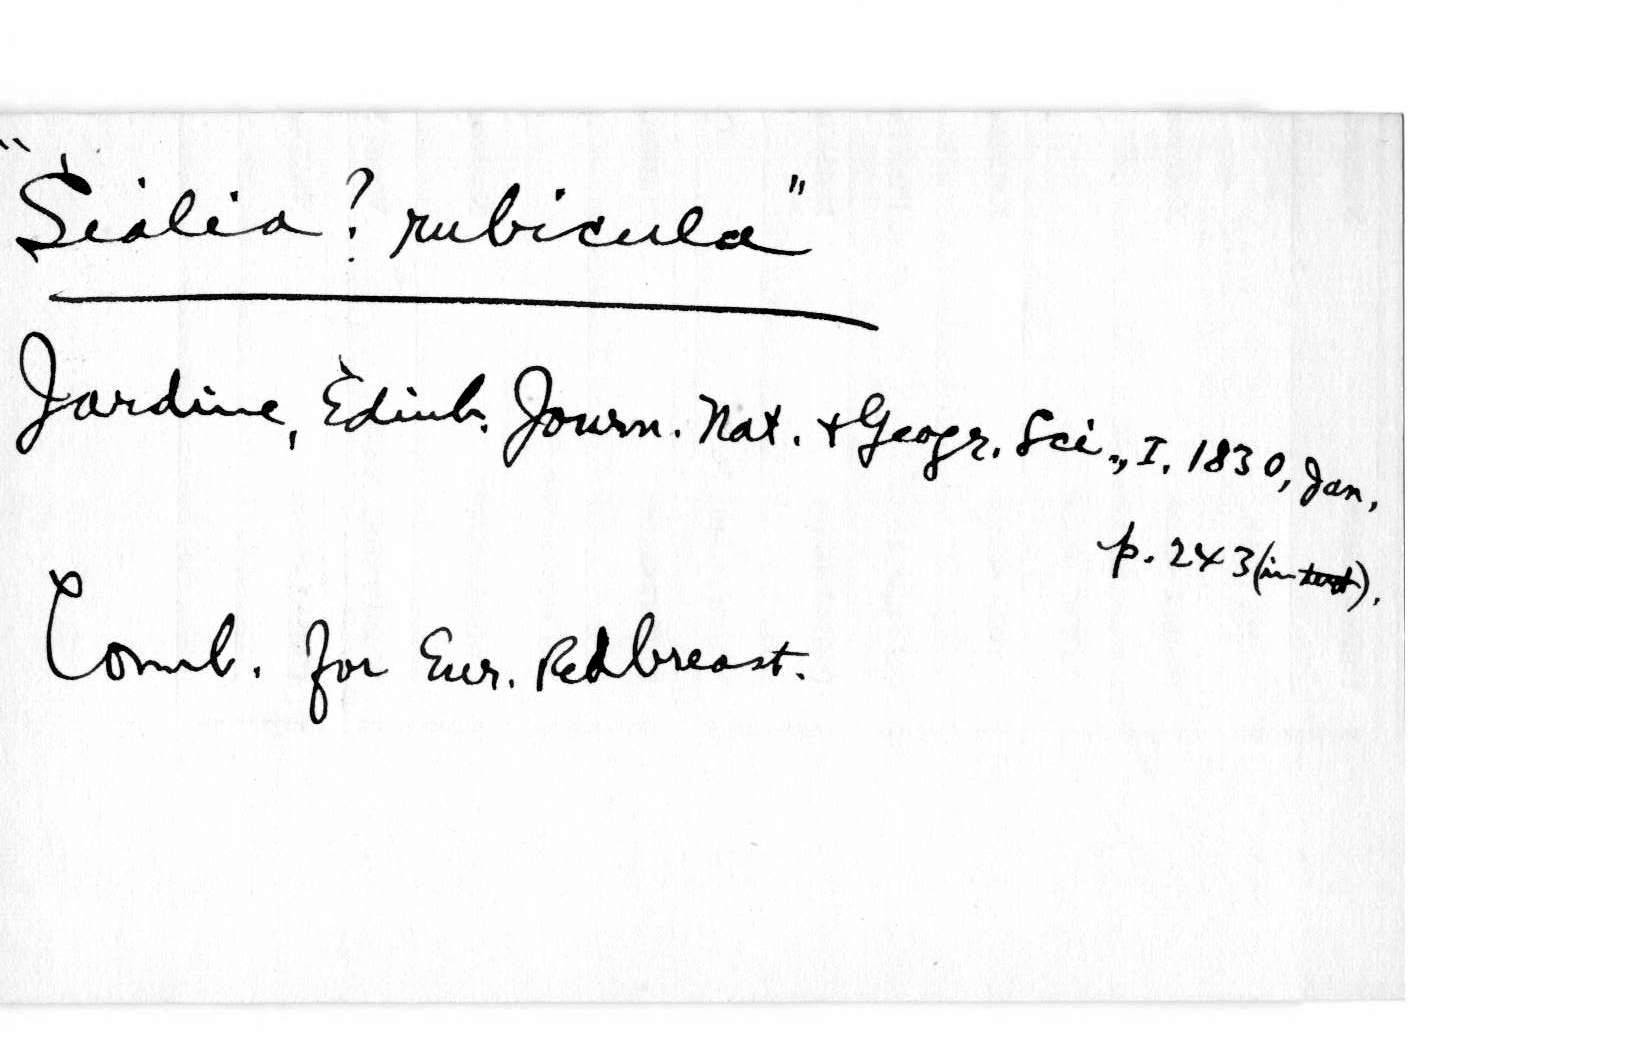 "Sialia ? rubicula"
Jardine, Edinb. Journ. Nat. + Geogr. Sci., I. 1830, Jan,
p. 243 (in text).
Comb. for Eur. Redbreast.